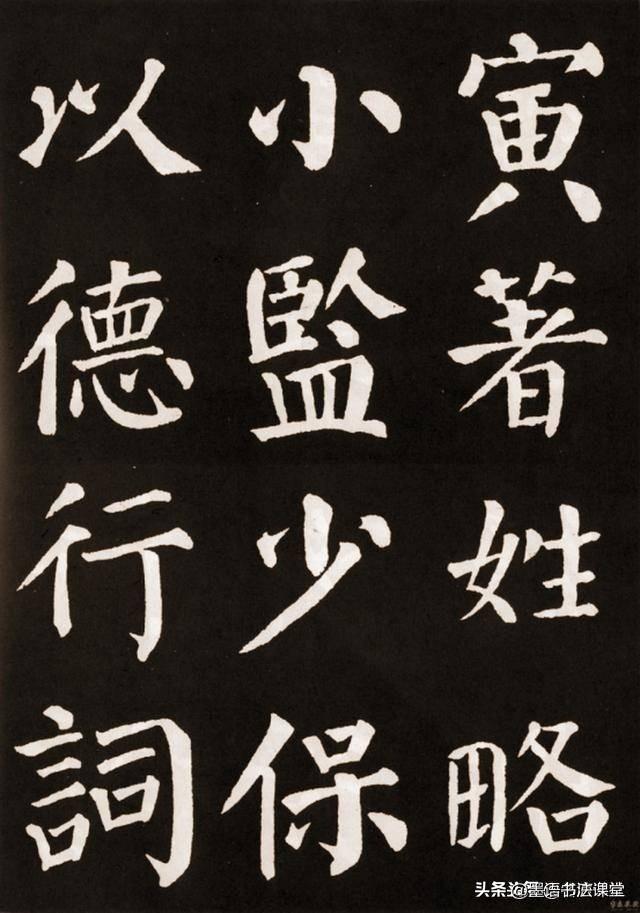 寅著姓略
小監少保
以德行詞
头条 @墨语书法课堂